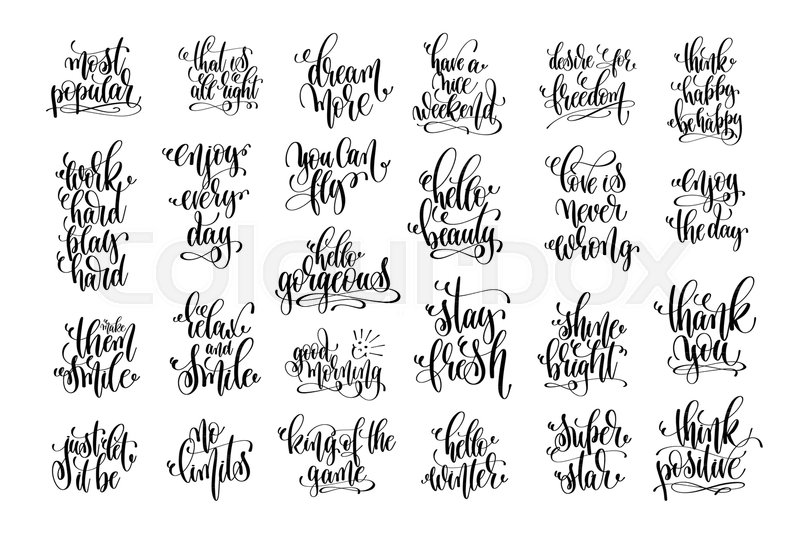 most
popular
that is
all right
dream
more
have a
nice
weekend
desire for
freedom
think
happy
be happy
work
hard
play
hard
enjoy
every
day
you can
fly
hello
beauty
love is
never
wrong
enjoy
the day
hello
gorgeous
make
them
smile
relax
and
smile
good
morning
stay
fresh
shine
bright
thank
you
just let
it be
no
limits
king of the
game
hello
winter
super
star
think
positive
Colourbox